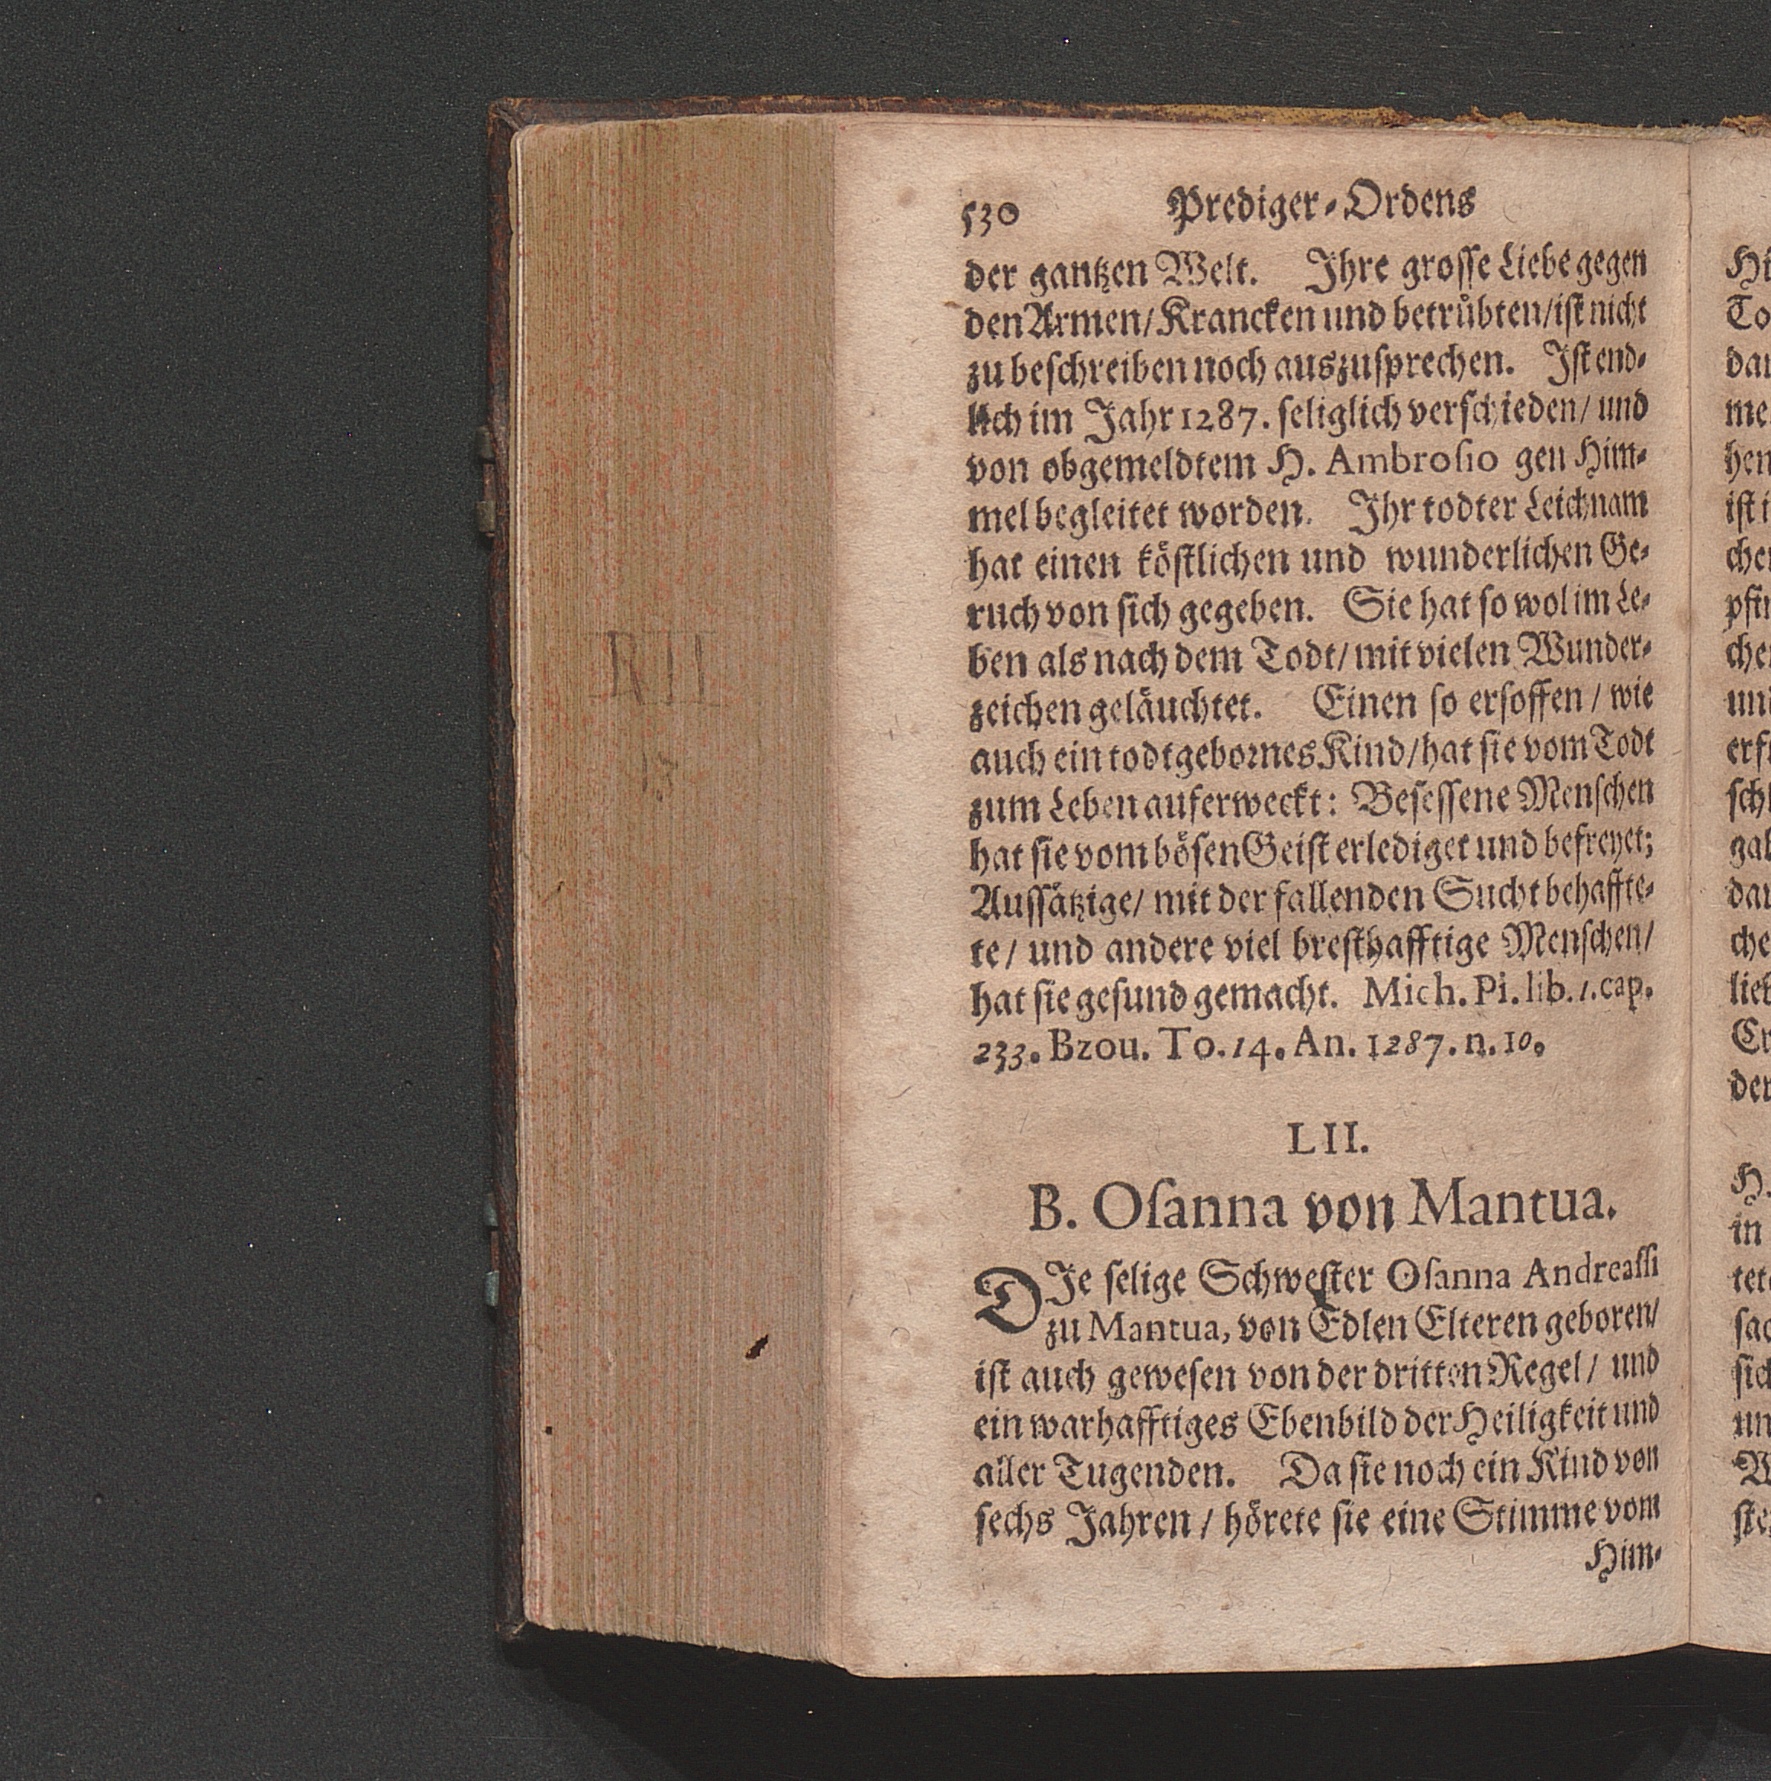 530 Prediger-Ordens
der gantzen Welt. Ihre grosse Liebe gegen
den Armen/ Krancken und betrůbten/ ist nicht
zu beschreiben noch auszusprechen. Ist end-
lich im Jahr 1287. seliglich verschieden/ und
von obgemeldtem H. Ambrosio gen Him-
mel begleitet worden. Ihr todter Leichnam
hat einen köstlichen und wunderlichen Ge-
ruch von sich gegeben. Sie hat so wol im Le-
ben als nach dem Todt/ mit vielen Wunder-
zeichen geläuchtet. Einen so ersoffen / wie
auch ein todtgebornes Kind/ hat sie vom Todt
zum Leben auferweckt: Besessene Menschen
hat sie vom bösen Geist erlediget und befreyet;
Aussätzige/ mit der fallenden Sucht behaffte-
te/ und andere viel bresthafftige Menschen/
hat sie gesund gemacht. Mich. Pi. lib. 1. cap.
233. Bzou. To. 14. An. 1287. n. 10.
LII.
B. Osanna von Mantua.
DIe selige Schwester Osanna Andreassi
zu Mantua, von Edlen Elteren geboren/
ist auch gewesen von der dritten Regel/ und
ein warhafftiges Ebenbild der Heiligkeit und
aller Tugenden. Da sie noch ein Kind von
sechs Jahren / hörete sie eine Stimme vom
Him-